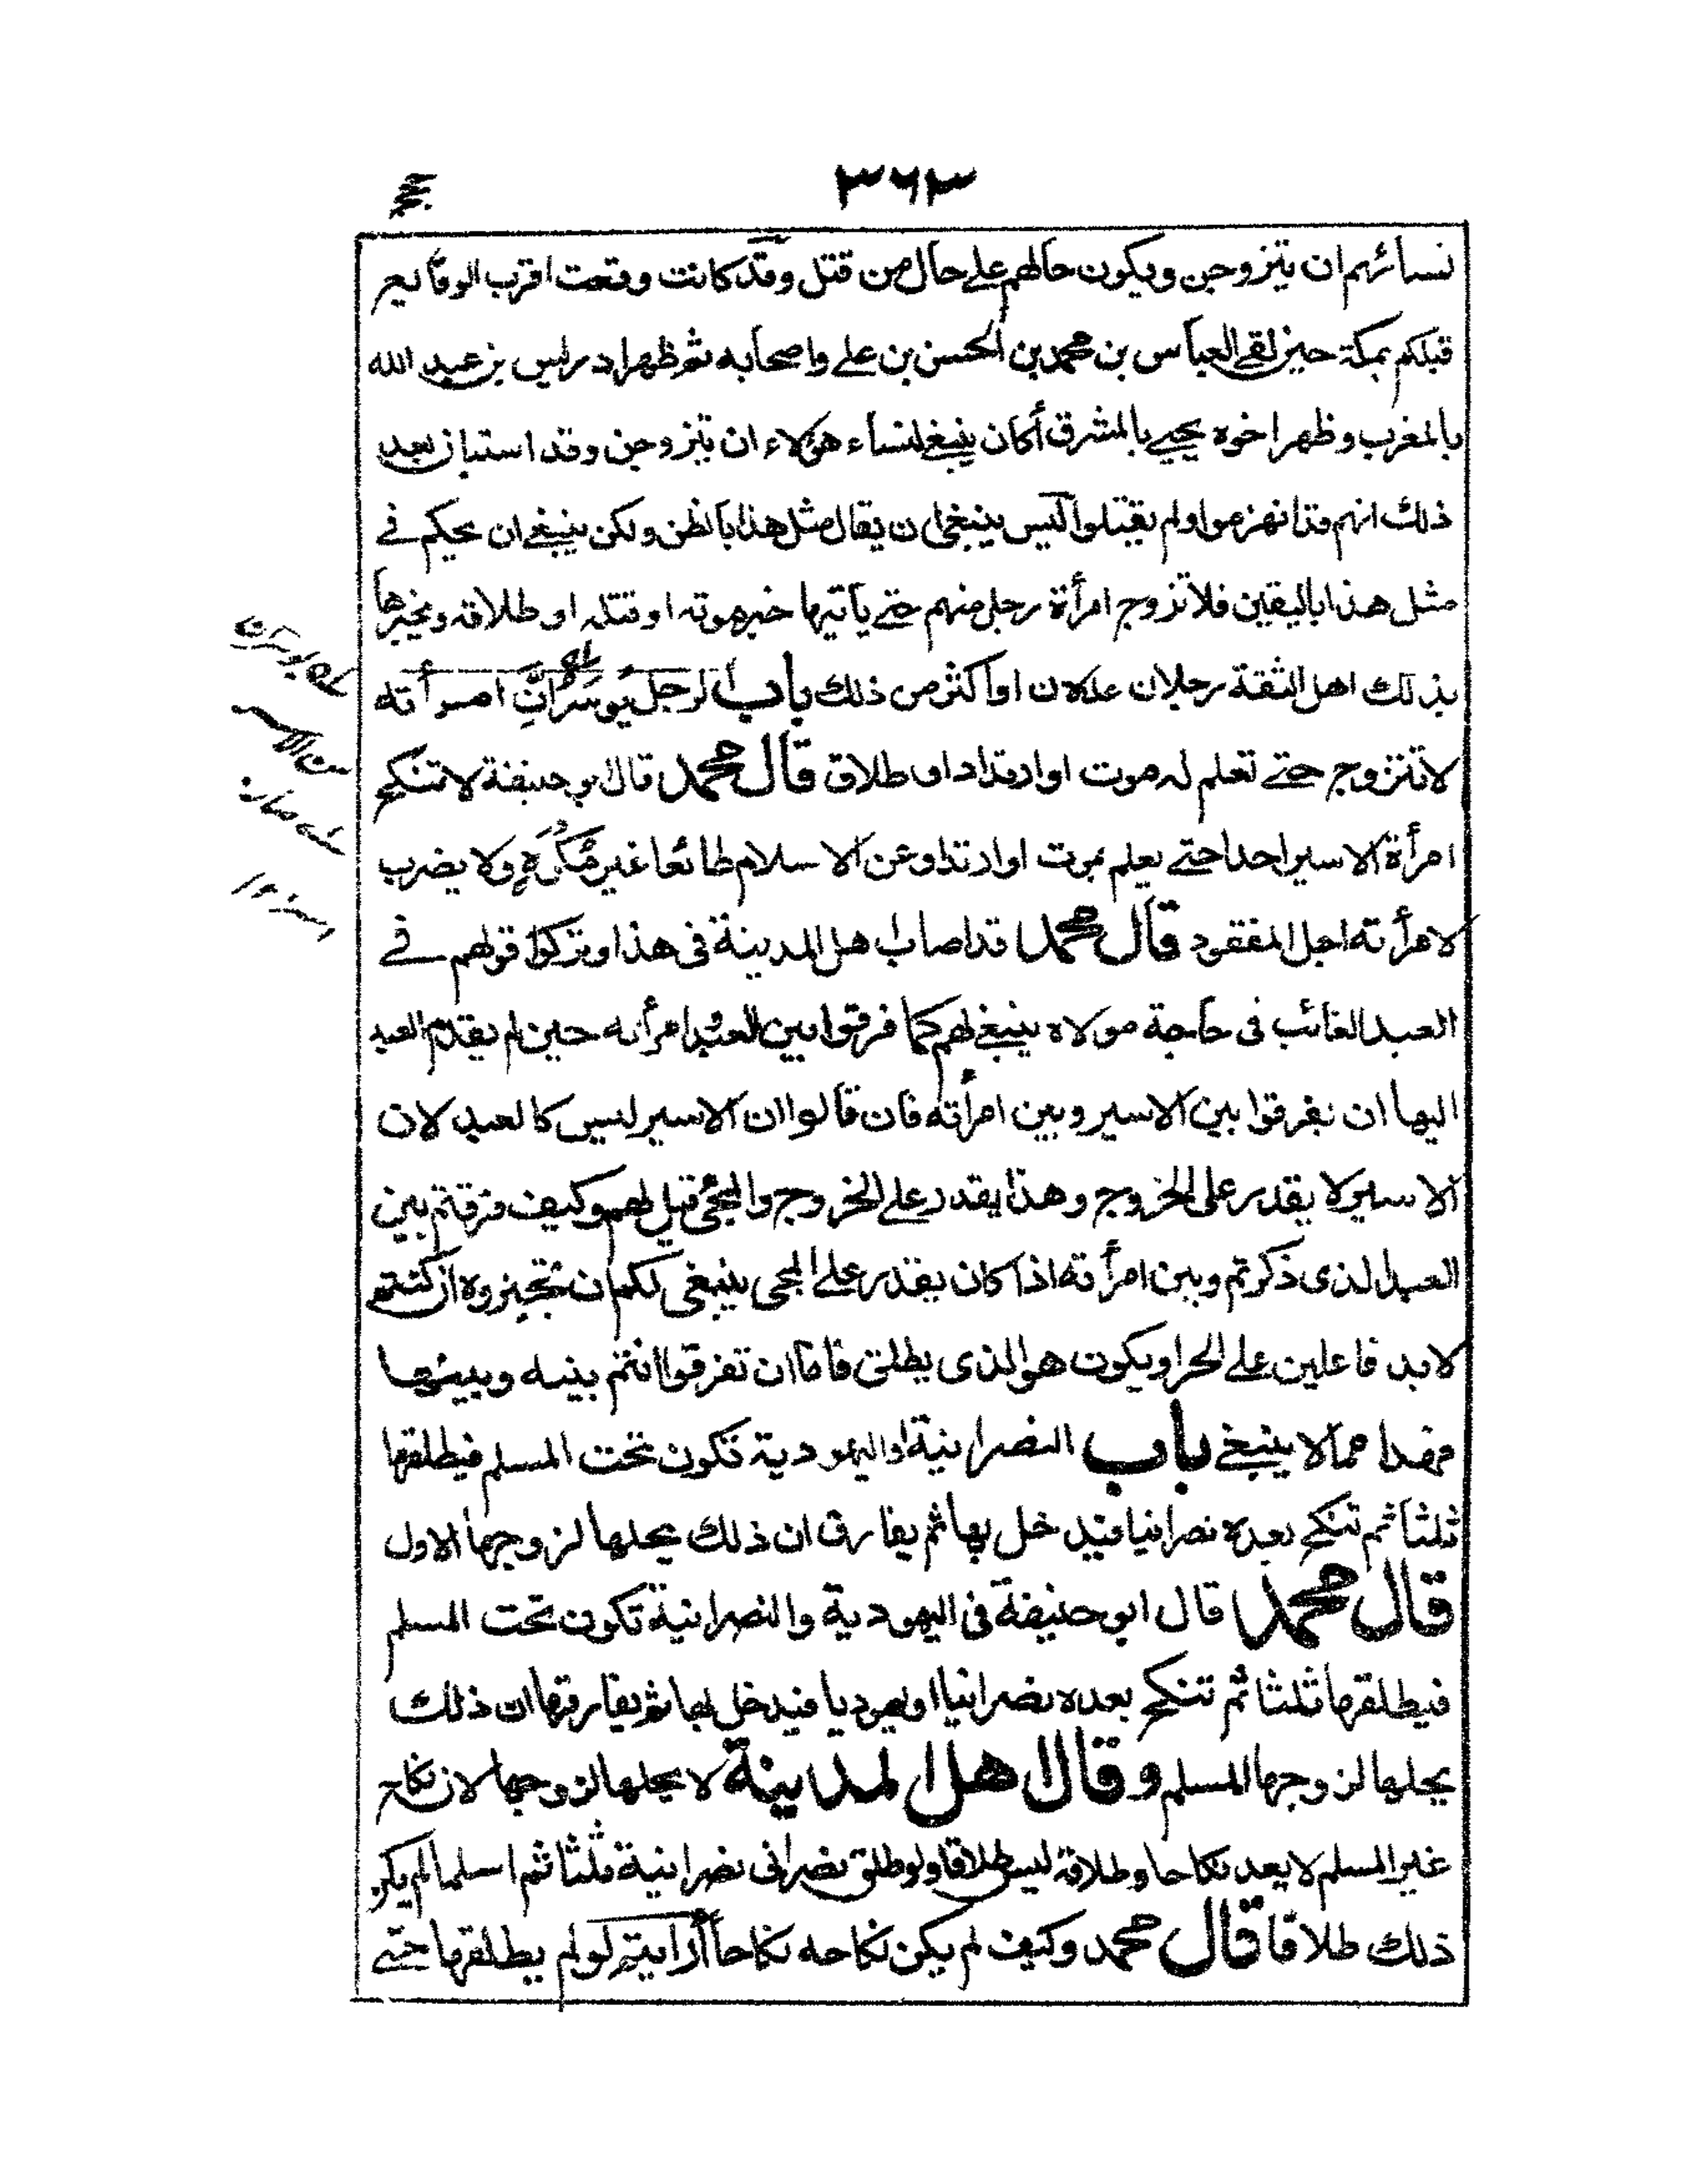 ٣٦٣
نسائهم ان يتزوجن ويكون حالهم على حال من قتل وقد كانت وقعت اقرب الوقائع
قبلكم بمكة حين لقى العباس بن محمد بن الحسن بن على واصحابه ثم ظهر ادريس بن عبد الله
بالمغرب وظهر اخوه يحيى بالمشرق أكان ينبغى لنساء هؤلاء ان يتزوجن وقد استبان بعد
ذلك انهم قد انهزموا ولم يقتلوا ليس ينبغى ان يقال مثل هذا بالظن ولكن ينبغى ان يحكم فى
مثل هذا باليقين فلا تزوج امرأة رجل منهم حتى يأتيها خبر موته او قتله او طلاقه ويخبرها
بذلك اهل الثقة رجلان عدلان او اكثر من ذلك باب الرجل يوسر ان امرأته
لا تتزوج حتى تعلم له موت او ارتداد او طلاق قال محمد قال ابو حنيفة لا تنكح
امرأة الاسير احدا حتى يعلم بموت او ارتداد عن الاسلام طائعا غير مكره ولا يضرب
لامرأته اجل المفقود قال محمد قد اصاب اهل المدينة فى هذا وتركوا قولهم فى
العبد الغائب فى حاجة مولاه ينبغى لهم كما فرقوا بين العبد وامرأته حين لم يقدم العبد
اليها ان يفرقوا بين الاسير وبين امرأته فان قالوا ان الاسير ليس كالعبد لان
الاسير لا يقدر على الخروج وهذا يقدر على الخروج والمجئ قيل لهم وكيف فرقتم بين
العبد الذى ذكرتم وبين امرأته اذا كان يقدر على المجى ينبغى لكم ان تجيزوه ان كنتم
لا بد فاعلين على الحر او يكون هو الذى يطلق فاما ان تفرقوا انتم بينه وبينها
فهذا مما لا ينبغى باب النصرانية او اليهودية تكون تحت المسلم فيطلقها
ثلثا ثم تنكح بعده نصرانيا فيدخل بها ثم يفارق ان ذلك يحلها لزوجها الاول
قال محمد قال ابو حنيفة فى اليهودية والنصرانية تكون تحت المسلم
فيطلقها ثلثا ثم تنكح بعده نصرانيا او يهوديا فيدخل بها ثم يفارقها ان ذلك
يحلها لزوجها المسلم وقال اهل المدينة لا يحلها لزوجها لان نكاح
غير المسلم لا يعد نكاحا وطلاقه ليس طلاقا ولو طلق نصرانى نصرانية ثلثا ثم اسلما لم يكن
ذلك طلاقا قال محمد وكيف لم يكن نكاحه نكاحا أرايتم لو لم يطلقها حتى